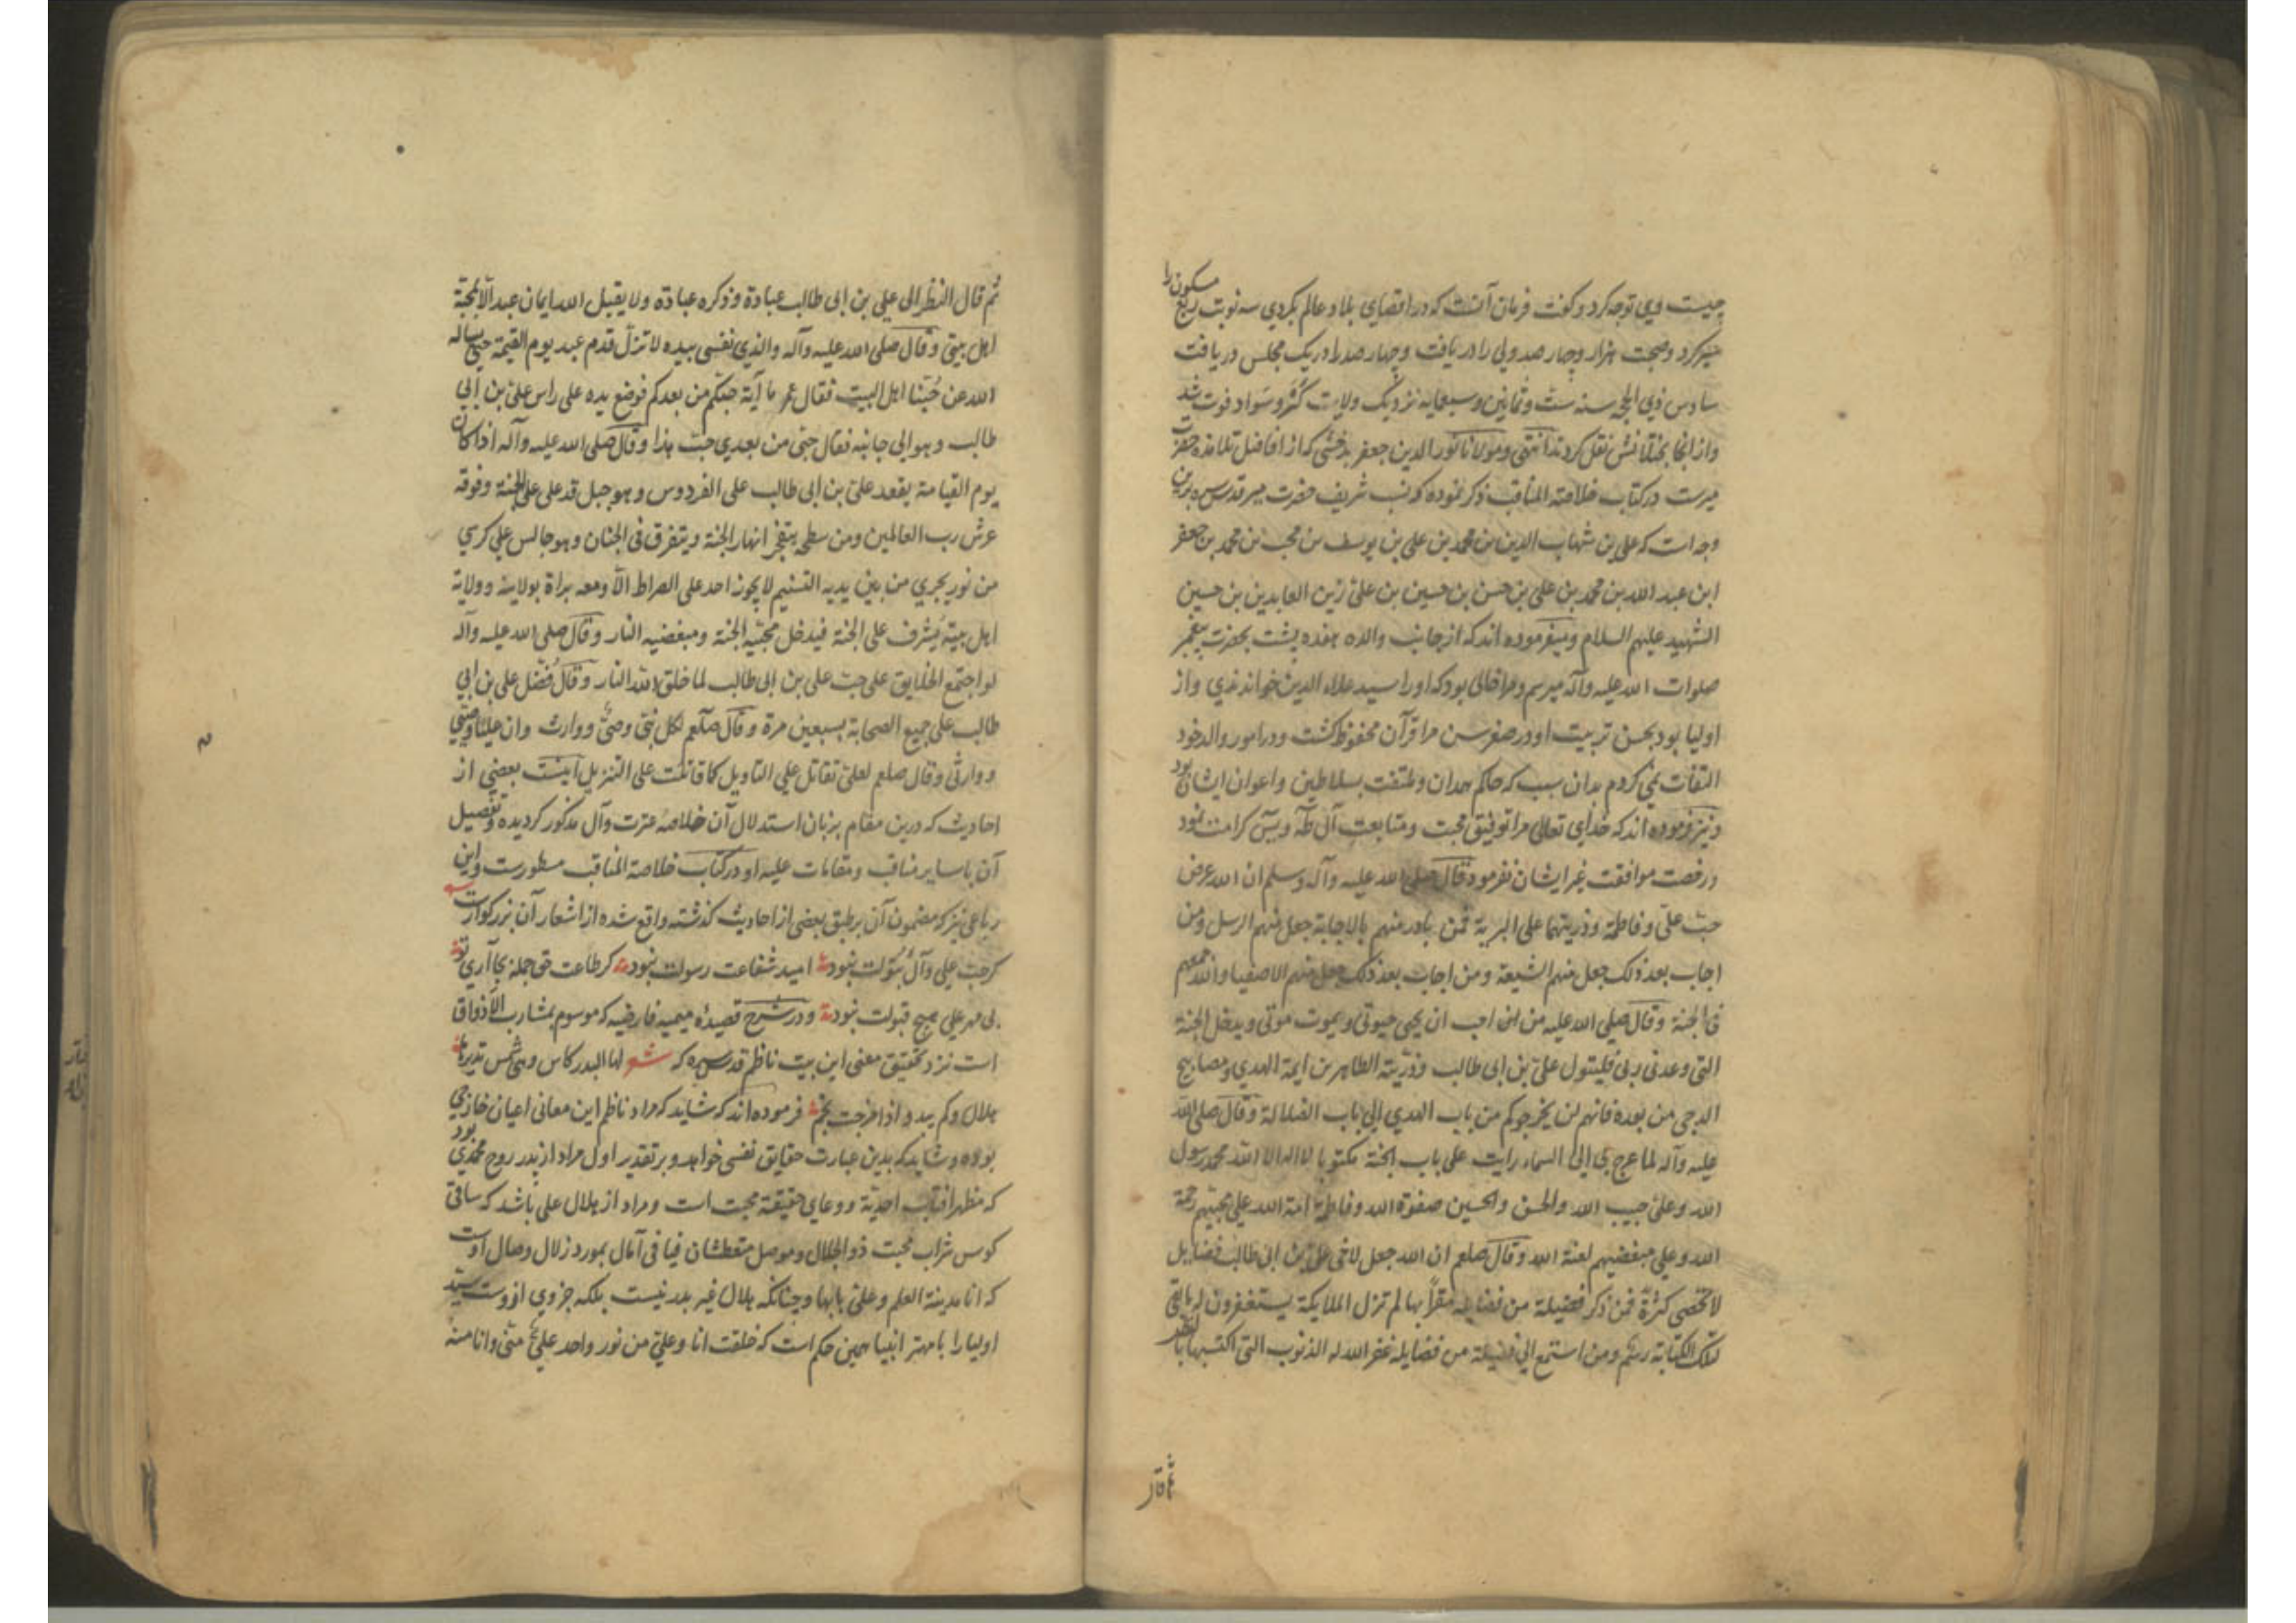 چیست وی توجه کرد و گفت فرمان آنست که در اقصای بلاد عالم بگردی سه نوبت ربع مسکون را
سیر کرد و صحبت هزار و چهار صد ولی را دریافت و چهار صد را در یک مجلس دریافت
سادس ذی الحجه سنه ست و ثمانین و سبعمایه نزدیک ولایت کنر و سواد فوت شد
و از آنجا بختلانش نقل کردند انتهی و مولانا نور الدین جعفر بدخشی که از افاضل تلامذه حضرت
میرست در کتاب خلاصة المناقب ذکر نموده که نسب شریف حضرت میر قدس سره برین
وجه است که علی بن شهاب الدین بن محمد بن علی بن یوسف بن محب بن محمد بن جعفر
ابن عبد الله بن محمد بن علی بن حسن بن حسین بن علی زین العابدین بن حسین
الشهید علیهم السلام و میفرموده اند که از جانب والده هفده پشت بحضرت پیغمبر
صلوات الله علیه وآله میرسم و مرا خالی بود که او را سید علاء الدین خواندندی و از
اولیا بود بحسن تربیت او در صغر سن مرا قرآن محفوظ گشت و در امور والد خود
التفات نمی کردم بدان سبب که حاکم همدان و ملتفت بسلاطین و اعوان ایشان بود
و نیز فرموده اند که خدای تعالی مرا توفیق محبت و متابعت آل طه و یس کرامت نمود
و رخصت موافقت غیر ایشان نفرمود قال صلی الله علیه وآله وسلم ان الله عرض
حب علی و فاطمة و ذریتهما علی البریة فمن بادر منهم بالاجابة جعل منهم الرسل ومن
اجاب بعد ذلک جعل منهم الشیعة ومن اجاب بعد ذلک جعل منهم الاصفیا و الله جمعهم
فی الجنة وقال صلی الله علیه من احب ان یحیی حیوتی ویموت موتی ویدخل الجنة
التی وعدنی ربی فلیتول علی بن ابی طالب وذریته الطاهرین ایمة الهدی ومصابیح
الدجی من بعده فانهم لن یخرجوکم من باب الهدی الی باب الضلالة وقال صلی الله
علیه وآله لما عرج بی الی السماء رایت علی باب الجنة مکتوبا لا اله الا الله محمد رسول
الله وعلی حبیب الله والحسن والحسین صفوة الله وفاطمة امة الله علی محبیهم رحمة
الله وعلی مبغضیهم لعنة الله وقال صلعم ان الله جعل لاخی علی بن ابی طالب فضایل
لا تحصی کثرة فمن ذکر فضیلة من فضایله مقرا بها لم تزل الملایکة یستغفرون له ما بقی
لتلک الکتابة رسم ومن استمع الی فضیلة من فضایله غفر الله له الذنوب التی اکتسبها بالنظر
ثم قال
ثم قال النظر الی علی بن ابی طالب عبادة وذکره عبادة ولا یقبل الله ایمان عبد الا بمحبة
اهل بیتی وقال صلی الله علیه وآله والذی نفسی بیده لا تزل قدم عبد یوم القیمة حتی یساله
الله عن حبنا اهل البیت فقال عمر ما آیة حبکم من بعدکم فوضع یده علی راس علی بن ابی
طالب وهو الی جانبه فقال حبی من بعدی حب هذا وقال صلی الله علیه وآله اذا کان
یوم القیامة یقعد علی بن ابی طالب علی الفردوس وهو جبل قد علی علی الجنة وفوقه
عرش رب العالمین ومن سطحه یتفجر انهار الجنة ویتفرق فی الجنان وهو جالس علی کرسی
من نور یجری من بین یدیه التسنیم لا یجوز احد علی الصراط الا ومعه براة بولایته وولایة
اهل بیته یشرف علی الجنة فیدخل محبیه الجنة ومبغضیه النار وقال صلی الله علیه وآله
لو اجتمع الخلایق علی حب علی بن ابی طالب لما خلق الله النار وقال فضل علی بن ابی
طالب علی جمیع الصحابة بسبعین مرة وقال صلعم لکل نبی وصی ووارث وان علیا وصیی
ووارثی وقال صلعم لعلی تقاتل علی التاویل کما قاتلت علی التنزیل اینست بعضی از
احادیث که درین مقام بزبان استدلال آن خلاصه عترت وآل مذکور گردیده وتفصیل
آن با سایر مناقب ومقامات علیه او در کتاب خلاصة المناقب مسطورست واین
رباعی نیز که مضمون آن بر طبق بعضی از احادیث گذشته واقع شده از اشعار آن بزرگوارست
گر حب علی وآل بتولت نبود امید شفاعت رسولت نبود گر طاعت حق جمله بجا آری تو
بی مهر علی هیچ قبولت نبود ودر شرح قصیده میمیه فارضیه که موسوم بمشارب الاذواق
است نزد تحقیق معنی این بیت ناظم قدس سره که شعر لها البدر کاس وهی شمس یدیرها
هلال وکم یبدو اذا مزجت نجم فرموده اند که شاید که مراد ناظم این معانی اعیان خارجی
بوده وشاید که بدین عبارت حقایق نفسی خواهد وبر تقدیر اول مراد از بدر روح محمدی بود
که مظهر آفتاب احدیة ووعای حقیقة محبت است ومراد از هلال علی باشد که ساقی
کوس شراب محبت ذو الجلال وموصل متعطشان فیافی آمال بمورد زلال وصال اوست
که انا مدینة العلم وعلی بابها وچنانکه هلال غیر بدر نیست بلکه جزوی ازوست سید
اولیا را با مهتر انبیا همین حکم است که خلقت انا وعلی من نور واحد علی منی وانا منه